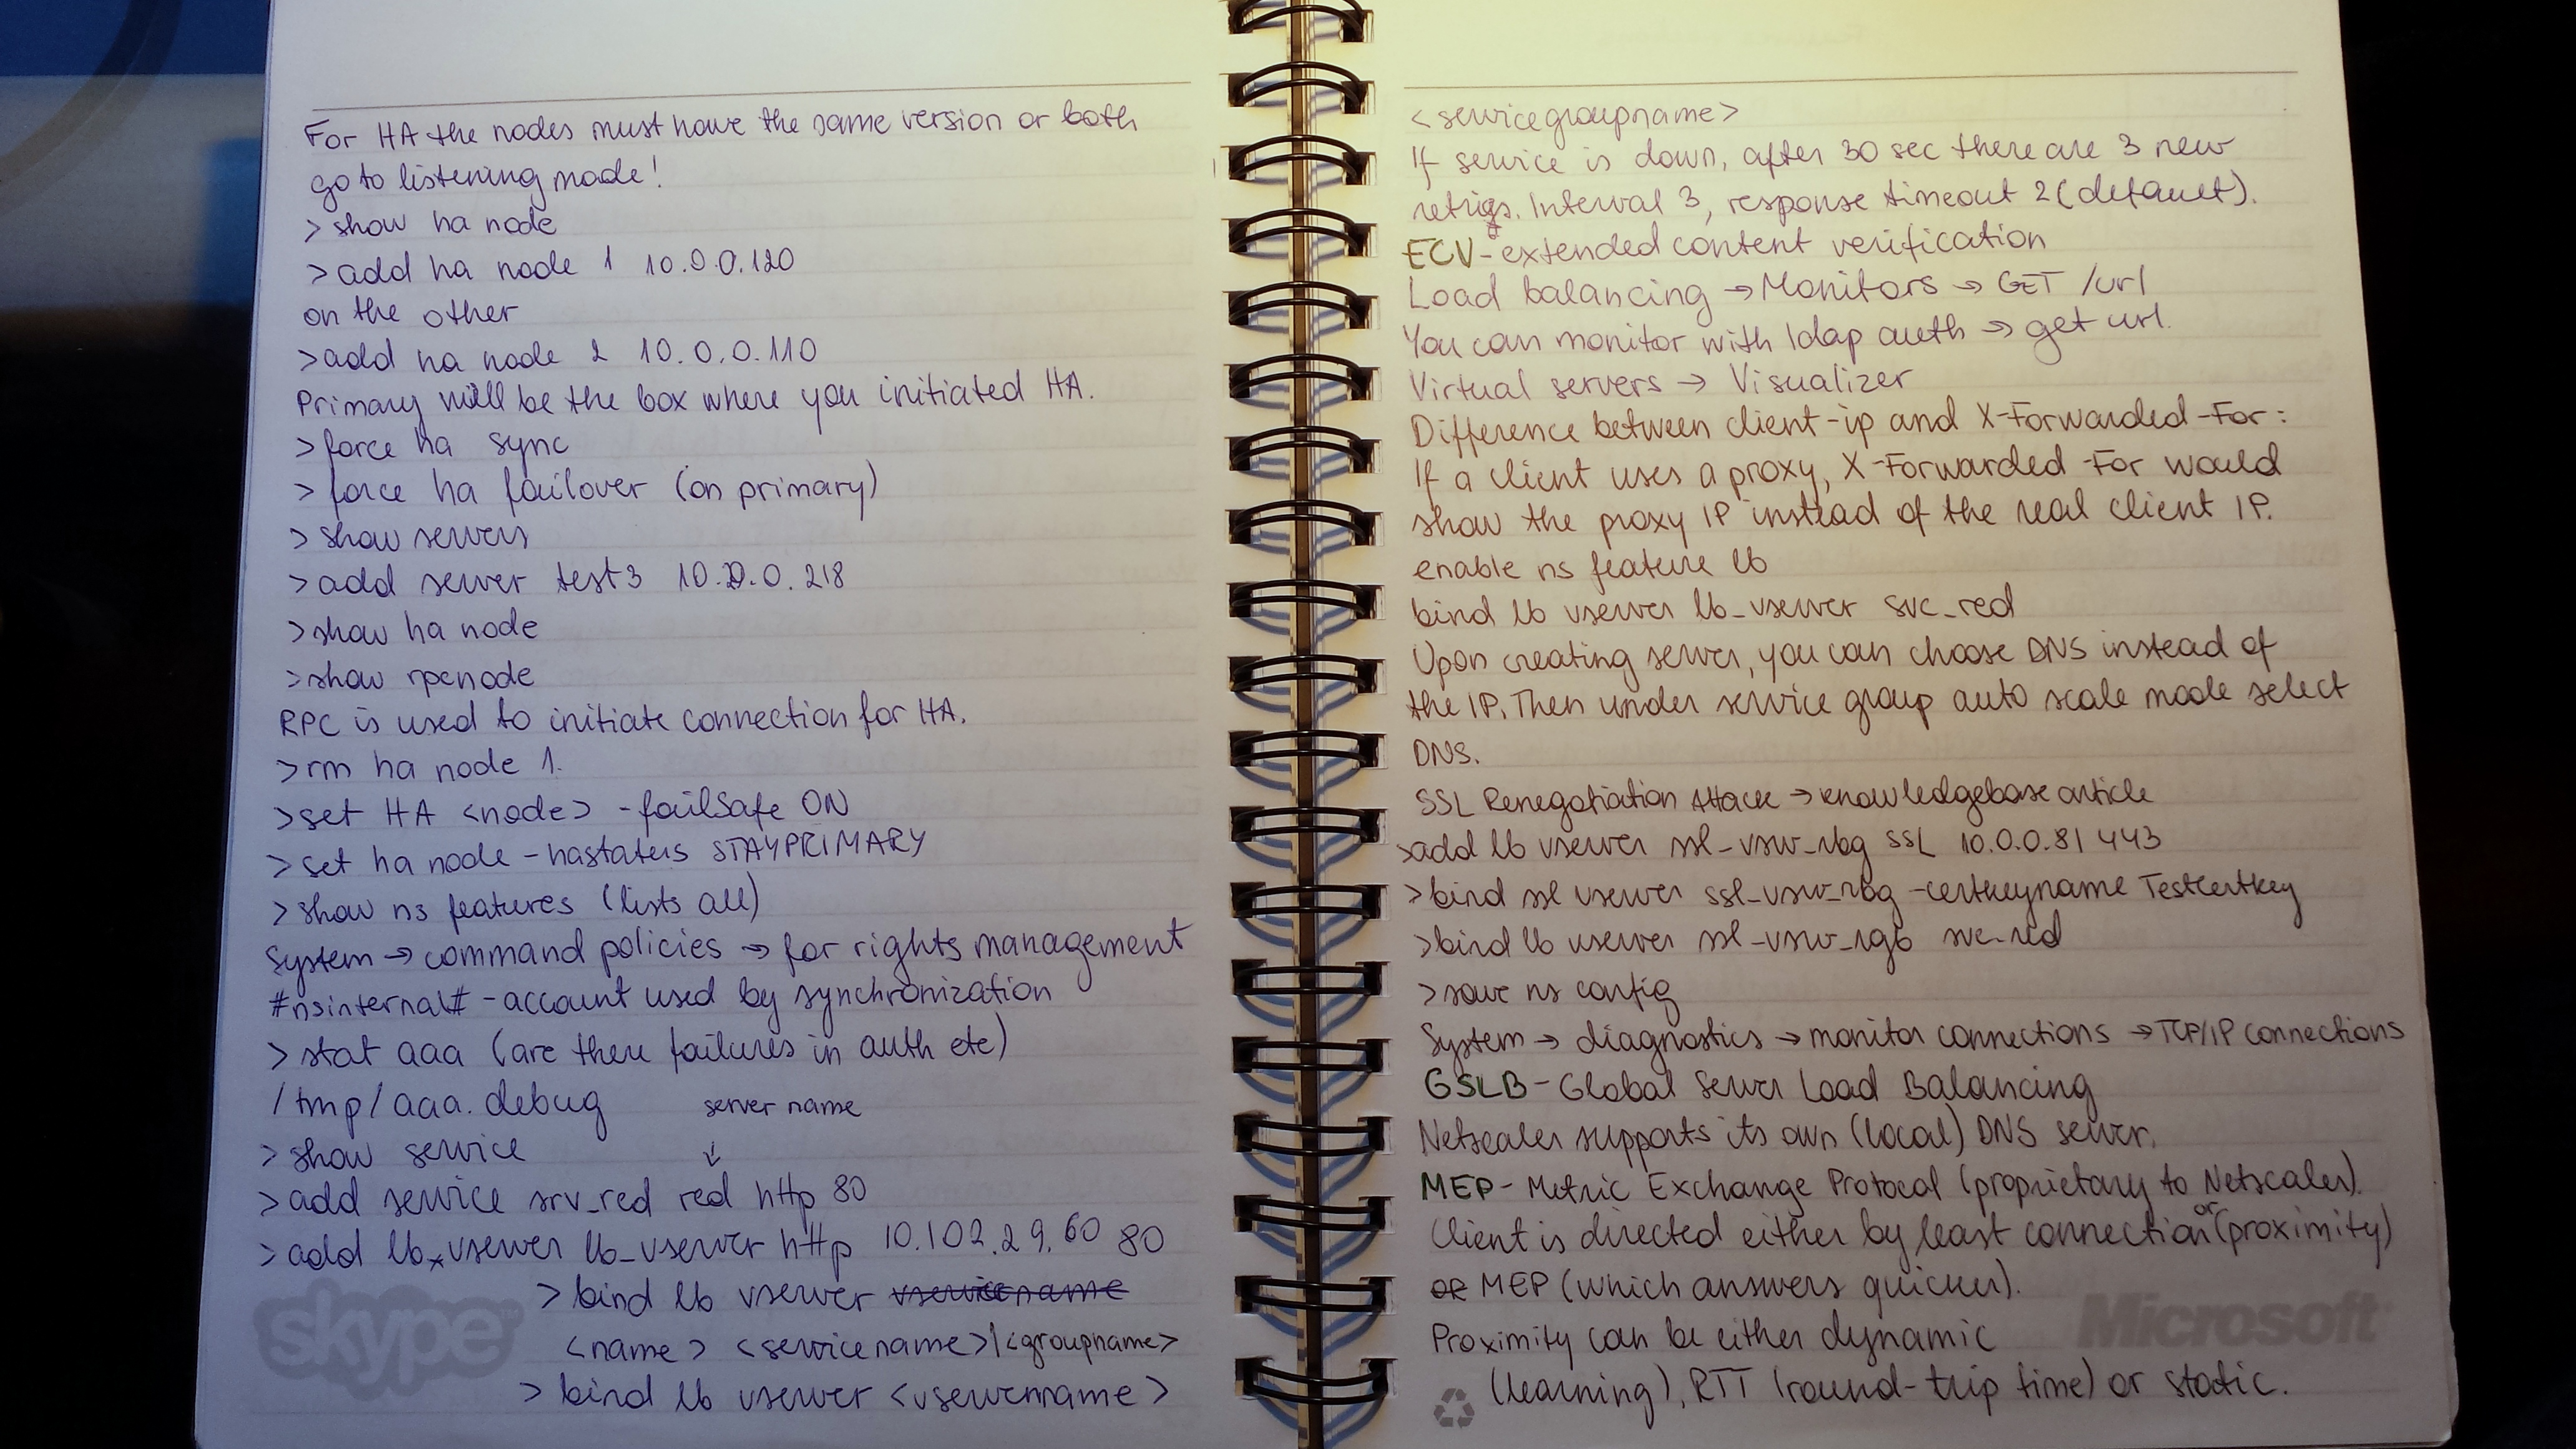 For HA the nodes must have the same version or both
go to listening mode!
> show ha node
> add ha node 1 10.0.0.120
on the other
> add ha node 2 10.0.0.110
Primary will be the box where you initiated HA.
> force ha sync
> force ha failover (on primary)
> show servers
> add server test3 10.0.0.218
> show ha node
> show rpcnode
RPC is used to initiate connection for HA.
> rm ha node 1.
> set HA <node> -failSafe ON
> set ha node -hastatus STAYPRIMARY
> show ns features (lists all)
System → command policies → for rights management
#nsinternal# - account used by synchronization
> stat aaa (are there failures in auth etc)
/tmp/aaa.debug server name
> show service ↓
> add service srv_red red http 80
> add lb vserver lb_vserver http 10.102.29.60 80
> bind lb vserver vservicename
<name> <servicename>|<groupname>
> bind lb vserver <vservername>
skype™
<servicegroupname>
If service is down, after 30 sec there are 3 new
retrigs. Interval 3, response timeout 2 (default).
ECV - extended content verification
Load balancing → Monitors → GET /url
You can monitor with ldap auth → get url.
Virtual servers → Visualizer
Difference between client-ip and X-Forwarded-For:
If a client uses a proxy, X-Forwarded-For would
show the proxy IP instead of the real client IP.
enable ns feature lb
bind lb vserver lb_vserver svc_red
Upon creating server, you can choose DNS instead of
the IP. Then under service group auto scale mode select
DNS.
SSL Renegotiation Attack → knowledgebase article
> add lb vserver ssl_vsw_rbg SSL 10.0.0.81 443
> bind ssl vserver ssl_vsw_rbg -certkeyname TestCertkey
> bind lb vserver ssl_vsw_rgb svc_red
> save ns config
System → diagnostics → monitor connections → TCP/IP connections
GSLB - Global Server Load Balancing
Netscaler supports its own (local) DNS server.
MEP - Metric Exchange Protocol (proprietary to Netscaler).
Client is directed either by least connection or (proximity)
or MEP (which answers quicker).
Proximity can be either dynamic
(learning), RTT (round-trip time) or static.
Microsoft